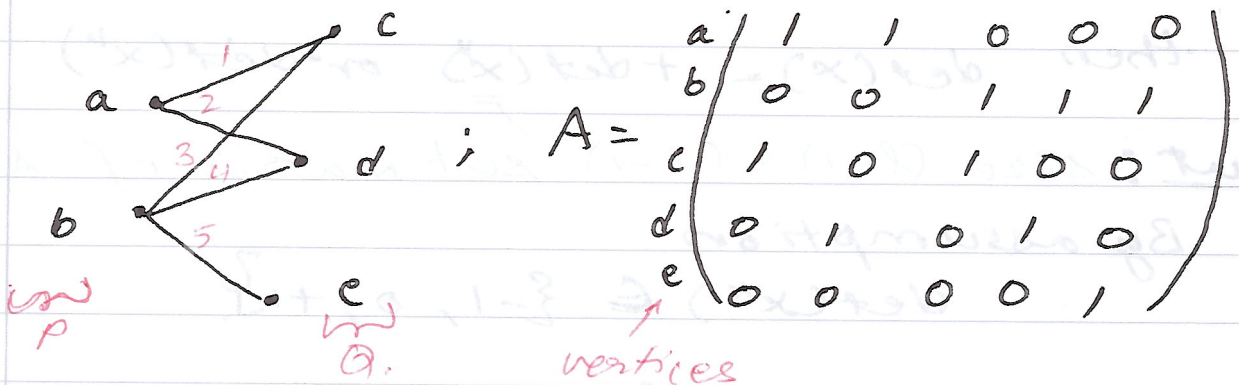 a
b
c
d
e
1
2
3
4
5
P
Q.
; A =
a 1 1 0 0 0
b 0 0 1 1 1
c 1 0 1 0 0
d 0 1 0 1 0
e 0 0 0 0 1
vertices